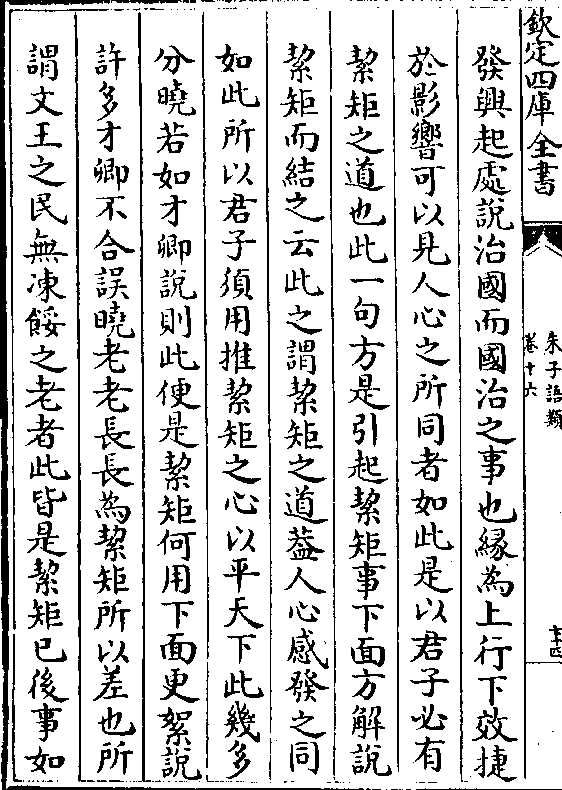 欽定四庫全書
朱子語類
卷十六
發興起處說治國而國治之事也緣為上行下效捷
於影響可以見人心之所同者如此是以君子必有
絜矩之道也此一句方是引起絜矩事下面方解說
絜矩而結之云此之謂絜矩之道葢人心感發之同
如此所以君子須用推絜矩之心以平天下此幾多
分曉若如才卿說則此便是絜矩何用下面更絮說
許多才卿不合誤曉老老長長為絜矩所以差也所
謂文王之民無凍餒之老者此皆是絜矩已後事如